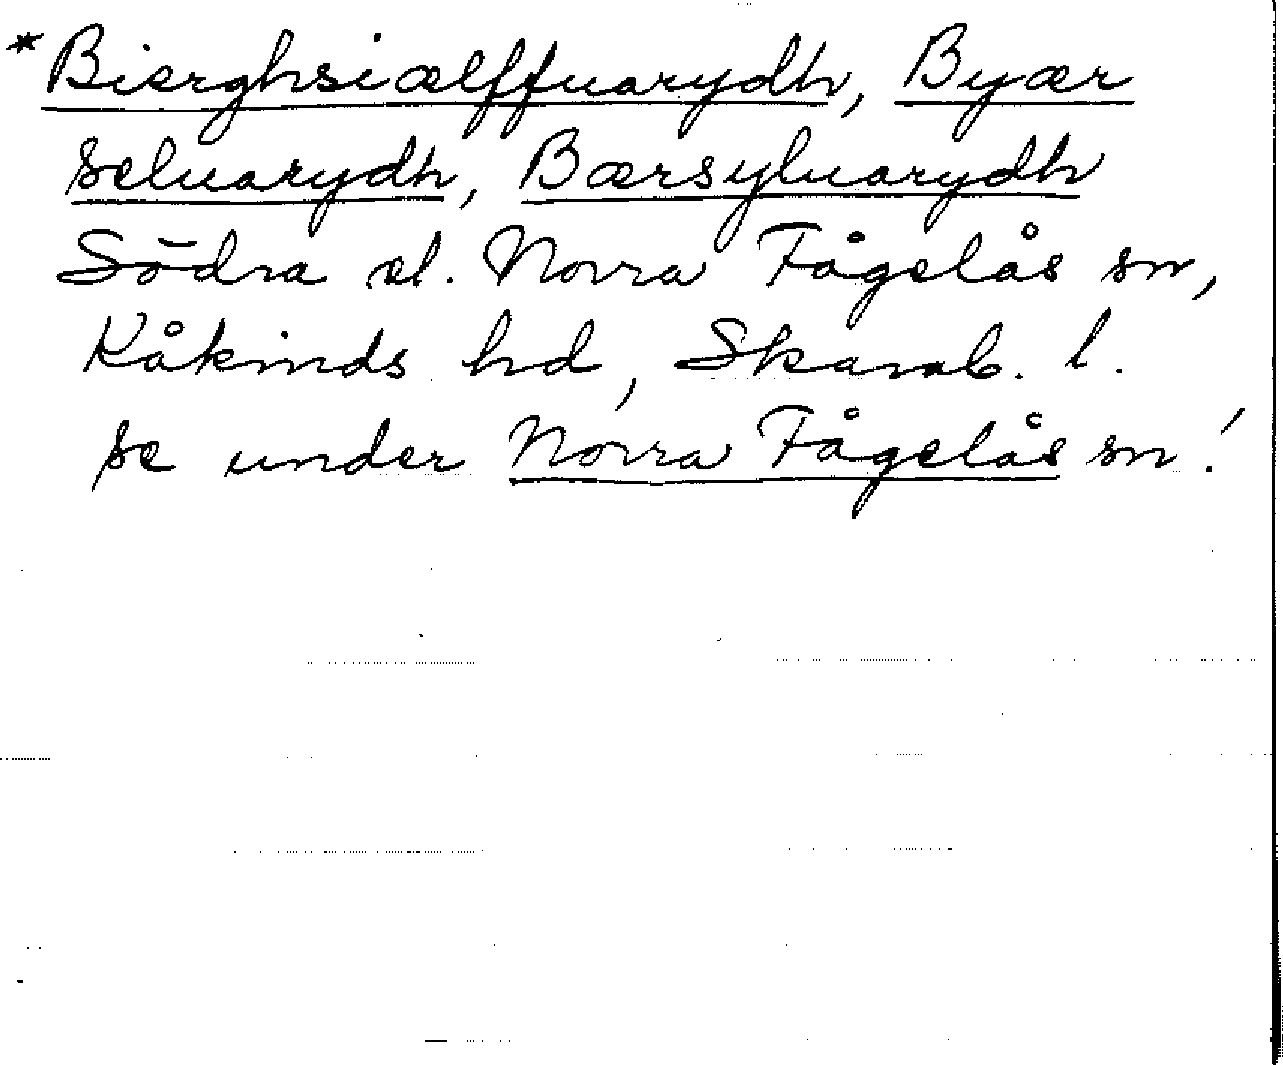 *Bierghsiælffuarydh, Byær
seluarydh, Bærsyluarydh
Södra el. Norra Fågelås sn,
Kåkinds hd, Skarab. l.
se under Norra Fågelås sn!